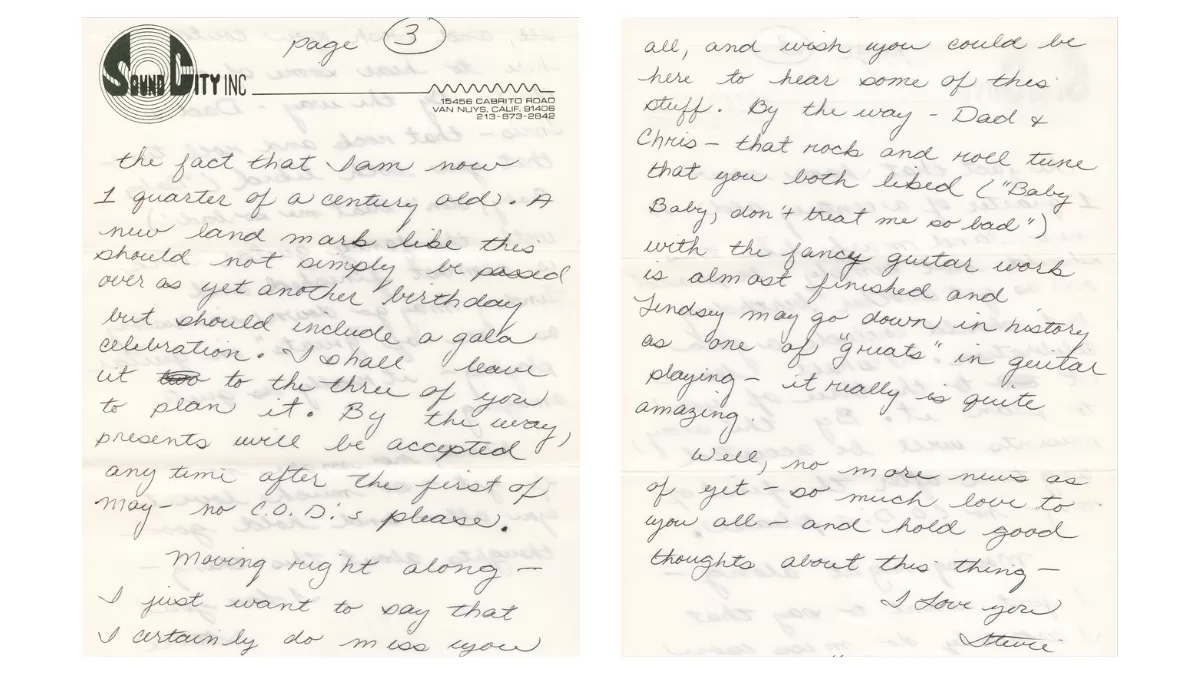 page 3
SOUND CITY INC
15456 CABRITO ROAD
VAN NUYS, CALIF. 91406
213-873-2842
the fact that I am now
1 quarter of a century old. A
new land mark like this
should not simply be passed
over as yet another birthday
but should include a gala
celebration. I shall leave
it two to the three of you
to plan it. By the way,
presents will be accepted
any time after the first of
May - no C.O.D.'s please.
Moving right along -
I just want to say that
I certainly do miss you
all, and wish you could be
here to hear some of this
stuff. By the way - Dad &
Chris - that rock and roll tune
that you both liked ("Baby
Baby, don't treat me so bad")
with the fancy guitar work
is almost finished and
Lindsey may go down in history
as one of "greats" in guitar
playing - it really is quite
amazing.
Well, no more news as
of yet - so much love to
you all - and hold good
thoughts about this thing -
I Love you
Stevie